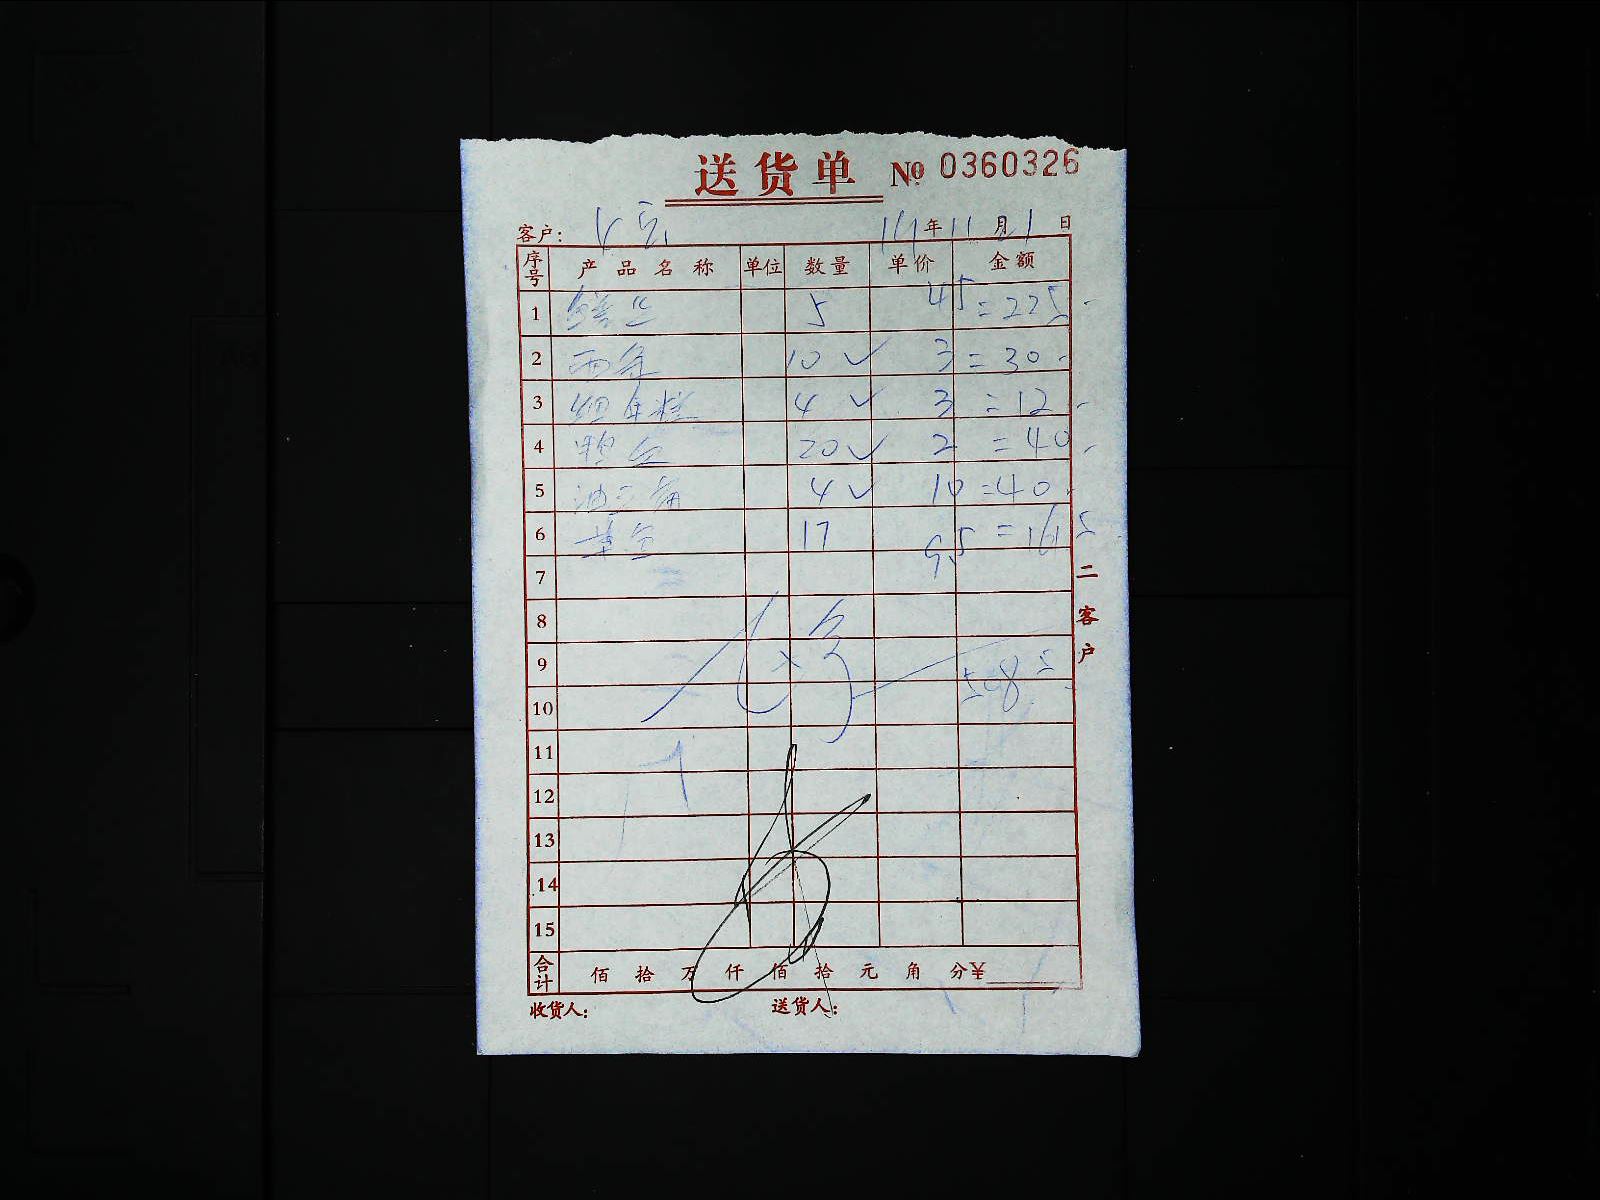 送货单 № 0360326
客户： 年 11 月 21 日
序号 产品名称 单位 数量 单价 金额
1 鳝丝 5 45 = 225
2 西芹 10 3 = 30
3 细年糕 4 3 = 12
4 鸭血 20 2 = 40
5 油三角 4 10 = 40
6 草鱼 17 9.5 = 161.5
7
8
9 508.5
10
11
12
13
14
15
合计 佰 拾 万 仟 佰 拾 元 角 分 ¥
收货人： 送货人：
二 客户